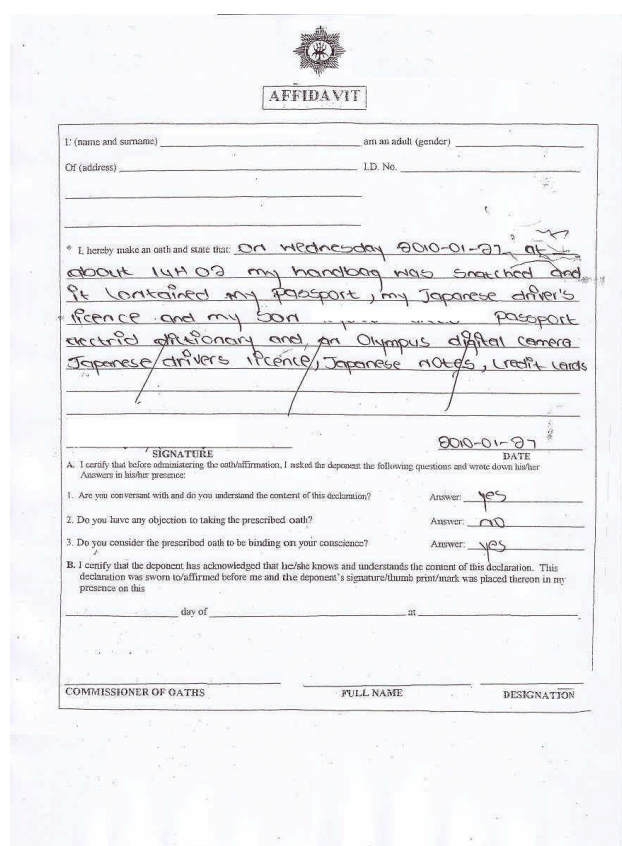 AFFIDAVIT
I' (name and surname) am an adult (gender)
Of (address) I.D. No.
* I, hereby make an oath and state that: On Wednesday 2010-01-27 at
about 14H02 my handbag was snatched and
it contained my passport, my Japanese driver's
licence and my son passport
electrid dictionary and an Olympus digital camera
Japanese drivers licence, Japanese notes, credit cards
2010-01-27
SIGNATURE DATE
A. I certify that before administering the oath/affirmation, I asked the deponent the following questions and wrote down his/her
Answers in his/her presence:
1. Are you conversant with and do you understand the content of this declaration? Answer: yes
2. Do you have any objection to taking the prescribed oath? Answer: no
3. Do you consider the prescribed oath to be binding on your conscience? Answer: yes
B. I certify that the deponent has acknowledged that he/she knows and understands the content of this declaration. This
declaration was sworn to/affirmed before me and the deponent's signature/thumb print/mark was placed thereon in my
presence on this
day of at
COMMISSIONER OF OATHS FULL NAME DESIGNATION